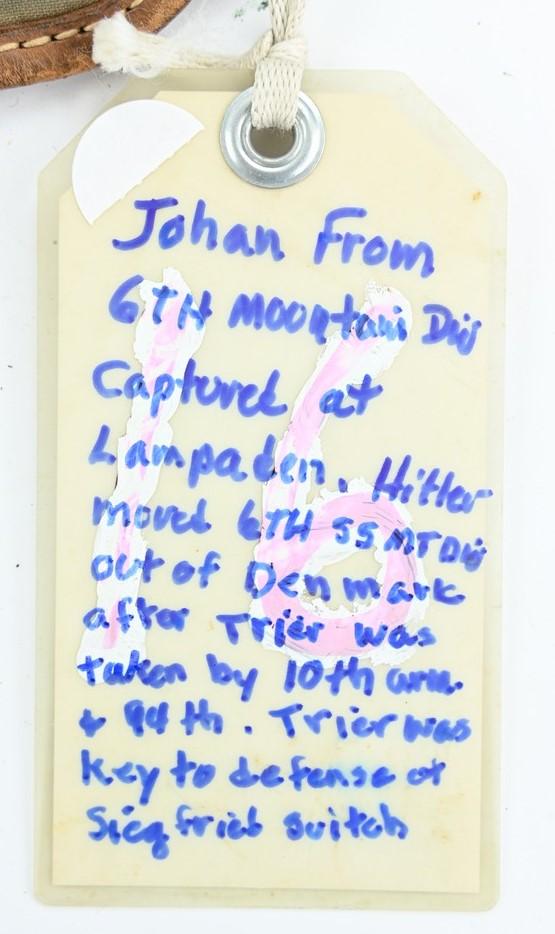 Johan From
6TH Mountain Div
Captured at
Lampaden. Hitler
moved 6TH SS MT Div
out of Denmark
after Trier was
taken by 10th arm.
+ 94th. Trier was
key to defense of
Siegfried switch
16